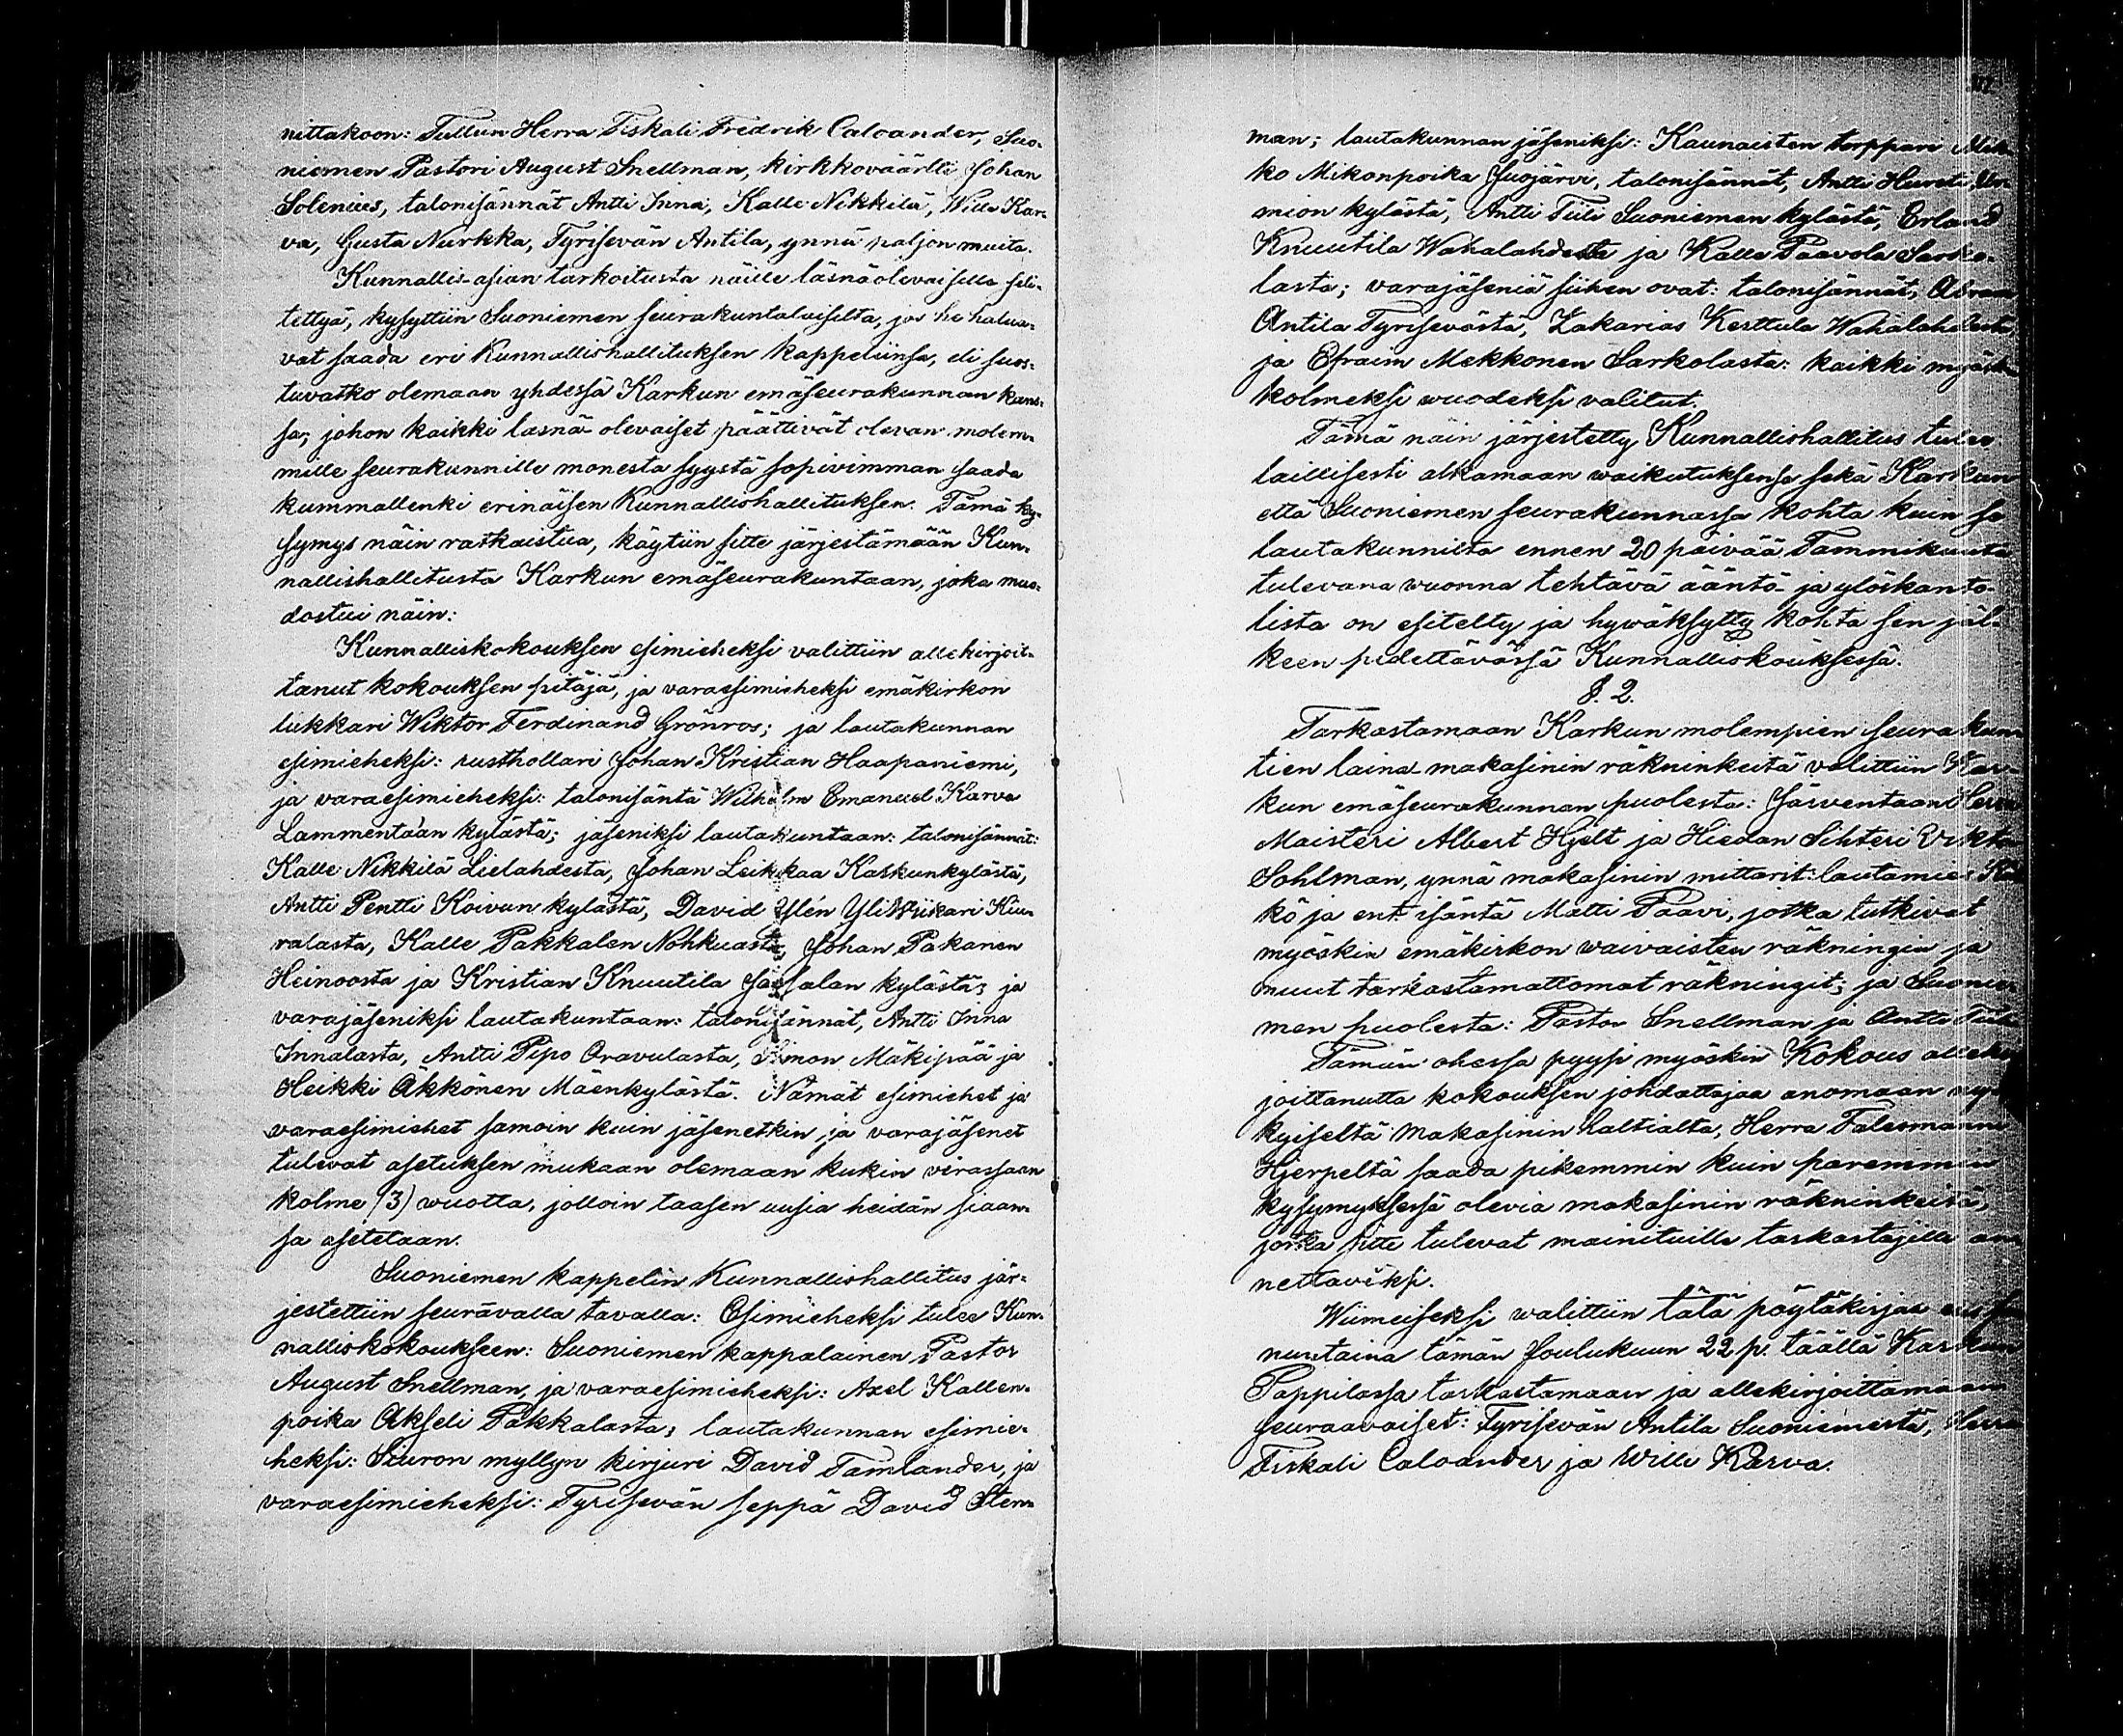 nittakoon: Tullun Herra Fiskali Fredrik Caloander, Suo-
niemen Pastori August Snellman, kirkkoväärtti Johan
Solenius, talonisännät Antti Inna, Kalle Nikkilä, Wille Kar-
va, Gusta Nurkka, Tyrisevän Antila, ynnä paljon muita.
Kunnallis-asian tarkoitusta näille läsnäolevaisille seli-
tettyä, kysyttiin Suoniemen seurakuntalaisilta, jos he halua-
vat saada eri Kunnallishallituksen kappeliinsa, eli suos-
tuvatko olemaan yhdessä Karkun emäseurakunnan kans-
sa; johon kaikki läsnä olevaiset päättivät olevan molem-
mille seurakunnille monesta syystä sopivimman saada
kummallenki erinäisen Kunnallishallituksen. Tämä ky-
symys näin ratkaistua, käytiin sitte järjestämään Kun-
nallishallitusta Karkun emäseurakuntaan, joka muo-
dostui näin:
Kunnalliskokouksen esimieheksi valittiin allekirjoit-
tanut kokouksen pitäjä, ja varaesimieheksi emäkirkon
lukkari Wiktor Ferdinand Grönros; ja lautakunnan
esimieheksi: rusthollari Johan Kristian Haapaniemi,
ja varaesimieheksi: talonisäntä Wilhelm Emanuel Karva
Lammentaan kylästä; jäseniksi lautakuntaan: talonisännät:
Kalle Nikkilä Lielahdesta, Johan Leikkaa Karkunkylästä,
Antti Pentti Koivun kylästä, David Ylén YliWiikari Kiu-
ralasta, Kalle Pakkalen Nohkuasta, Johan Pakanen
Heinoosta ja Kristian Knuutila Jässalan kylästä; ja
varajäseniksi lautakuntaan: talonisännät, Antti Inna
Innalasta, Antti Pipo Oravulasta, Simon Mäkipää ja
Heikki Äkkönen Mäenkylästä. Nämät esimiehet ja
varaesimiehet samoin kuin jäsenetkin, ja varajäsenet
tulevat asetuksen mukaan olemaan kukin virassaan
kolme (3) wuotta, jolloin taasen uusia heidän siaan-
sa asetetaan.
Suoniemen kappelin Kunnallishallitus jär-
jestettiin seuravalla tavalla: Esimieheksi tulee Kun-
nalliskokoukseen: Suoniemen kappalainen Pastor
August Snellman, ja varaesimieheksi: Axel Kallen-
poika Akseli Pakkalasta; lautakunnan esimie-
heksi: Siuron myllyn kirjuri David Tamlander, ja
varaesimieheksi: Tyrisevän seppä David Sten-
man; lautakunnan jäseniksi: Kaunaisten torppari Mik-
ko Mikonpoika Juojärvi, talonisännät, Antti Hursti
mion kylästä, Antti Tiili Suoniemen kylästä, Erland
Knuutila Wahalahdesta ja Kalle Paavola Sarko-
lasta; varajäseniä siihen ovat: talonisännät, Abram
Antila Tyrisevästä, Zakarias Kesttula Wahalahdesta
ja Efraim Mekkonen Sarkolasta: kaikki myös
kolmeksi wuodeksi valitut.
Tämä näin järjestetty Kunnallishallitus tulee
laillisesti alkamaan waikutuksensa sekä Karkun
että Suoniemen seurakunnassa kohta kuin se
lautakunnilta ennen 20 päivää Tammikuuta
tulevana wuonna tehtävä ääntö- ja ylöskanto-
lista on esitelty ja hywäksytty kohta sen jäl-
keen pidettävässä Kunnalliskouksessä.
§. 2.
Tarkastamaan Karkun molempien seurakun-
tien laina makasinin räkninkeitä valittiin Kar-
kun emäseurakunnan puolesta: Järventaan Herra
Maisteri Albert Hjelt ja Hiedan Sihteri Viktor
Sohlman, ynnä makasinin mittarit: lautamies
kö ja ent. isäntä Matti Paavi, jotka tutkivat
myöskin emäkirkon waivaisten räkningin ja
muut tarkastamattomat räkningit; ja Suonie-
men puolesta: Pastor Snellman ja Antti Tiili
Tämän ohessa pyysi myöskin Kokous allekir-
joittanutta kokouksen johdattajaa anomaan ny-
kyiseltä Makasinin haltialta, Herra Falesmanni
Hjerpeltä saada pikemmin kuin paremmin
kysymyksessä olevia makasinin räkninkeitä,
jotka sitte tulevat mainituille tarkastajille an-
nettaviksi.
Wiimeiseksi walittiin tätä pöytäkirjaa
nuntaina tämän Joulukuun 22 p. täällä Karkun
Pappilassa tarkastamaan ja allekirjoittamaan
seuraavaiset: Tyrisevän Antila Suoniemestä, Herra
Fiskali Caloander ja Wille Karva.